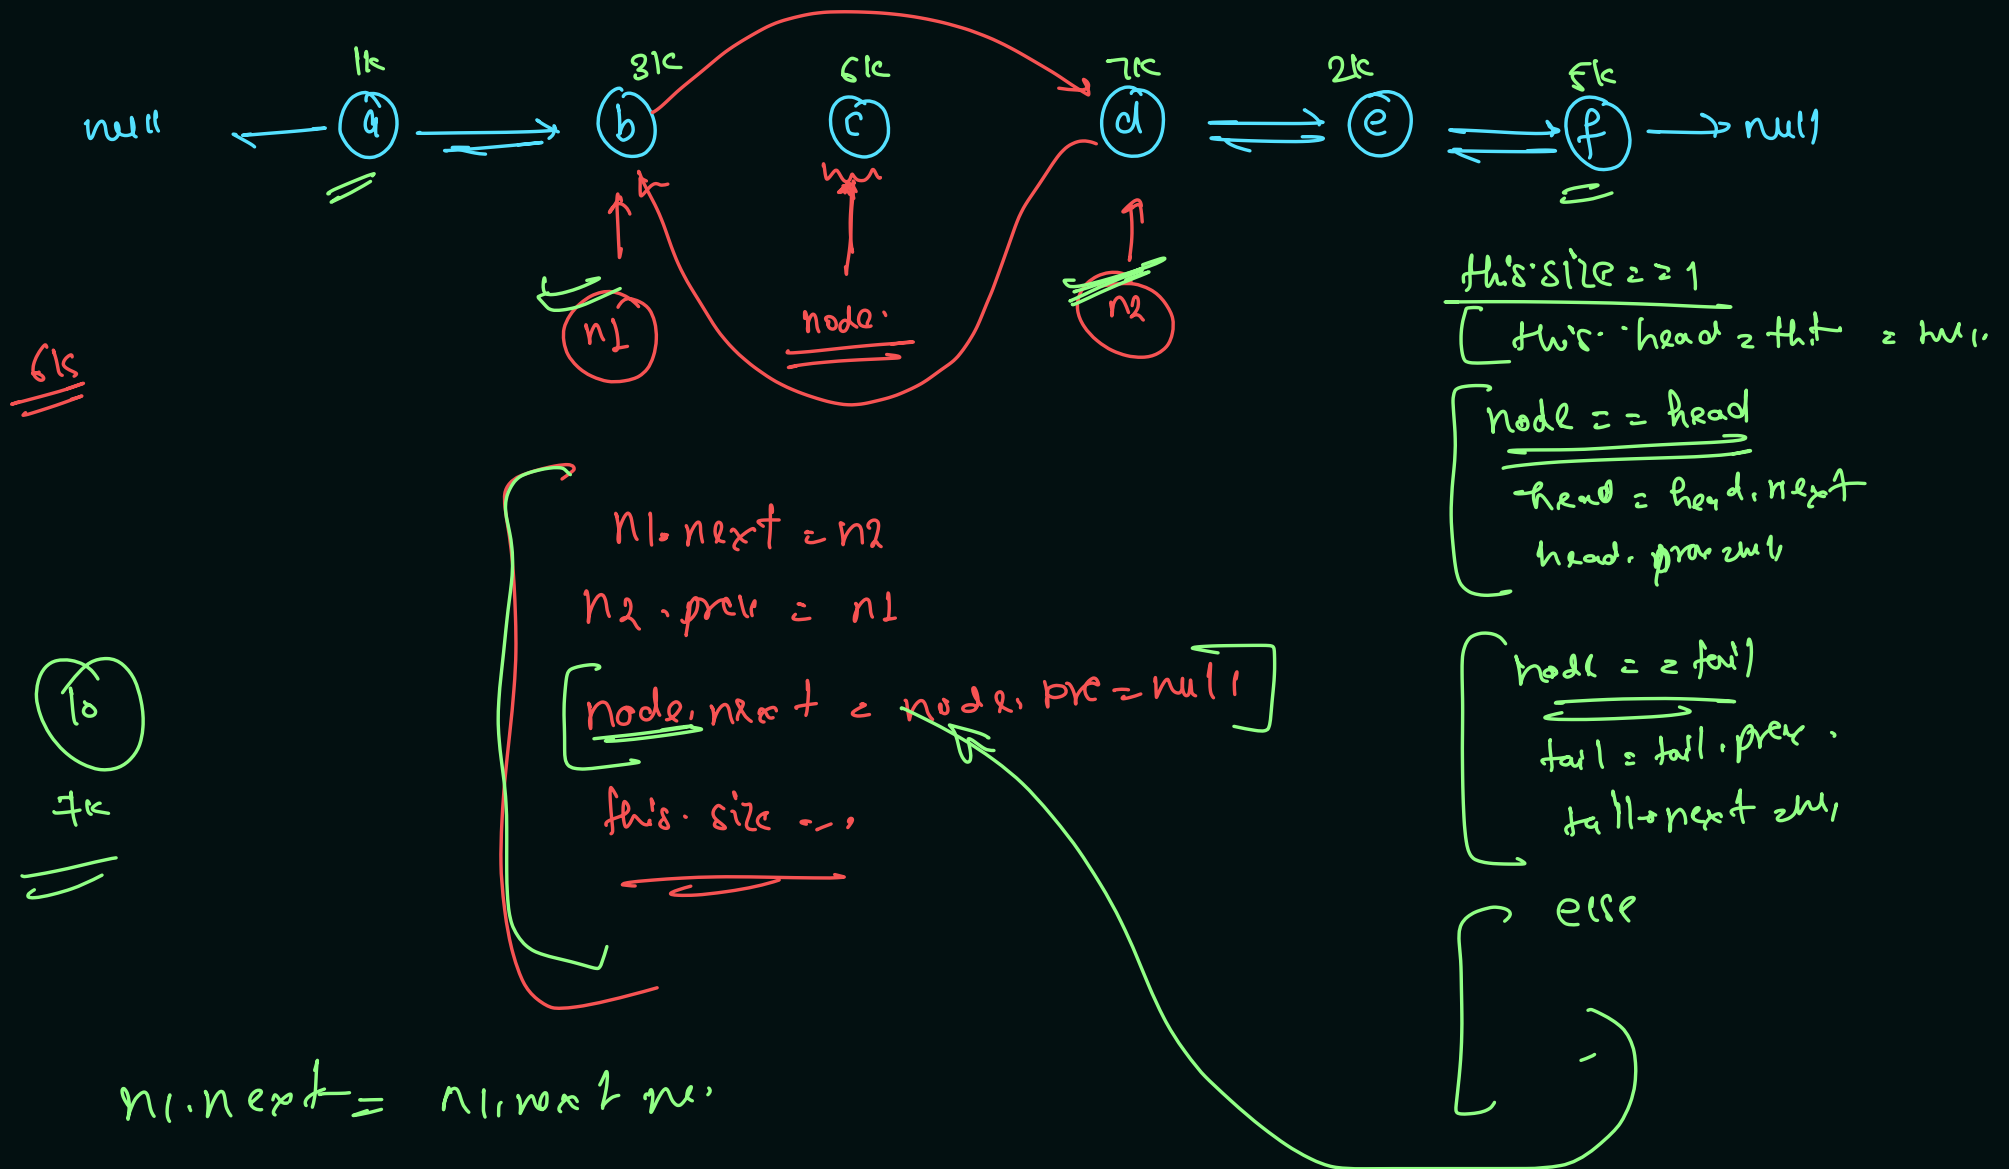 1k 3k 6k 7k 2k 5k
null a b c d e f null
n1 node. n2
6k
n1.next = n2
n2.prev = n1
node.next = node.pre = null
this.size --;
10
7k
n1.next = n1.next ne.
this.size == 1
this.head =
node == head
head = head.next
head.prev =
node == tail
tail = tail.prev.
tail.next =
else